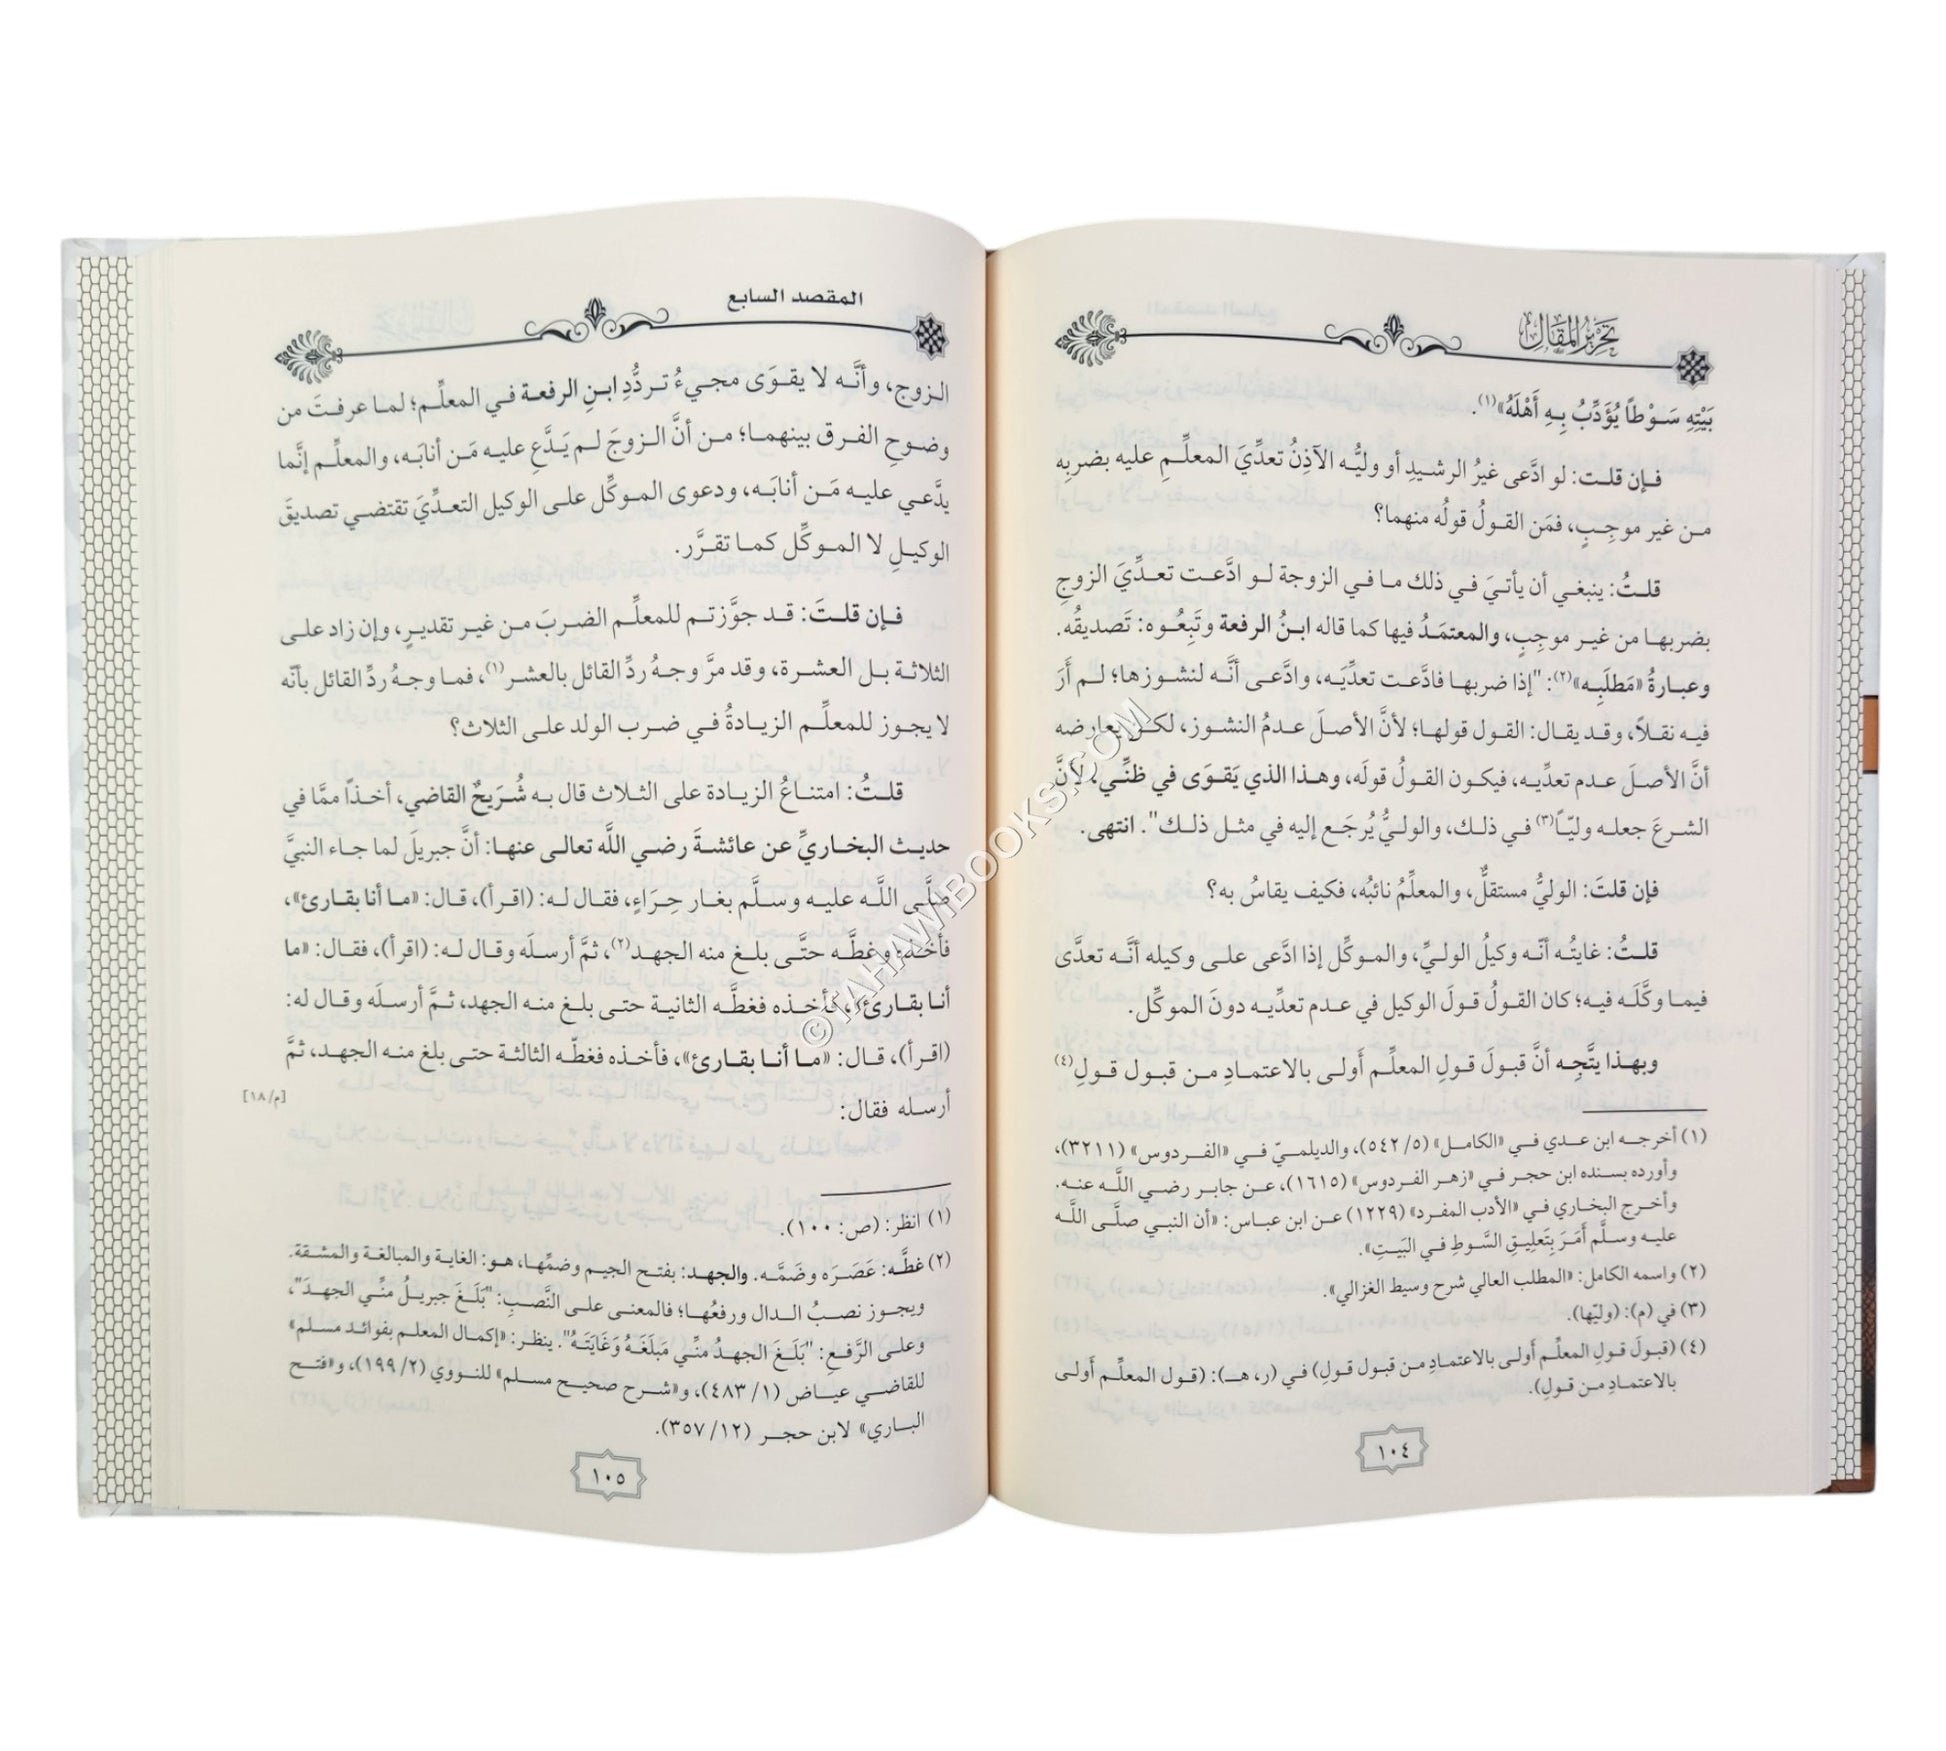 تحرير المقال
بَيْتِهِ سَوْطاً يُؤَدِّبُ بِهِ أَهْلَهُ»(١).
فإن قلت: لو ادَّعى غيرُ الرشيدِ أو وليُّه الآذِنُ تعدِّيَ المعلِّمِ عليه بضربِهِ
من غير موجِبٍ، فمَن القولُ قولُه منهما؟
قلتُ: ينبغي أن يأتيَ في ذلك ما في الزوجة لو ادَّعت تعدِّيَ الزوجِ
بضربها من غير موجِبٍ، والمعتمَدُ فيها كما قاله ابنُ الرفعة وتَبِعُوه: تَصديقُه.
وعبارةُ «مَطلَبِه»(٢): "إذا ضربها فادَّعت تعدِّيَه، وادَّعى أنَّه لنشوزها؛ لم أَرَ
فيه نقلاً، وقد يقال: القول قولها؛ لأنَّ الأصلَ عدمُ النشوز، لكن يعارضه
أنَّ الأصلَ عدم تعدِّيه، فيكون القولُ قولَه، وهذا الذي يَقوَى في ظنِّي، لأنَّ
الشرعَ جعله وليّاً(٣) في ذلك، والوليُّ يُرجَع إليه في مثل ذلك". انتهى.
فإن قلتَ: الوليُّ مستقلٌّ، والمعلِّمُ نائبُه، فكيف يقاسُ به؟
قلتُ: غايتُه أنّه وكيلُ الوليِّ، والموكِّل إذا ادَّعى على وكيله أنَّه تعدَّى
فيما وكَّلَه فيه؛ كان القولُ قولَ الوكيل في عدم تعدِّيه دونَ الموكِّل.
وبهذا يتَّجِه أنَّ قبولَ قولِ المعلِّم أَولى بالاعتمادِ من قبول قولِ(٤)
(١) أخرجه ابن عدي في «الكامل» (٥/ ٥٤٢)، والديلميّ في «الفردوس» (٣٢١١)،
وأورده بسنده ابن حجر في «زهر الفردوس» (١٦١٥)، عن جابر رضي اللَّه عنه.
وأخرج البخاري في «الأدب المفرد» (١٢٢٩) عن ابن عباس: «أن النبي صلَّى اللَّه
عليه وسلَّم أَمَرَ بِتَعلِيقِ السَّوطِ في البَيتِ».
(٢) واسمه الكامل: «المطلب العالي شرح وسيط الغزالي».
(٣) في (م): (وليّها).
(٤) (قبولَ قولِ المعلِّم أولى بالاعتمادِ من قبول قولِ) في (ر، هـ): (قول المعلِّم أولى
بالاعتمادِ من قولِ).
١٠٤
المقصد السابع
الزوج، وأنَّه لا يقوَى مجيءُ تردُّدِ ابنِ الرفعة في المعلِّم؛ لما عرفتَ من
وضوحِ الفرق بينهما؛ من أنَّ الزوجَ لم يَدَّعِ عليه مَن أنابَه، والمعلِّم إنَّما
يدَّعي عليه مَن أنابَه، ودعوى الموكِّل على الوكيل التعدِّيَ تقتضي تصديقَ
الوكيلِ لا الموكِّل كما تقرَّر.
فإن قلتَ: قد جوَّزتم للمعلِّم الضربَ من غير تقديرٍ، وإن زاد على
الثلاثة بل العشرة، وقد مرَّ وجهُ ردِّ القائل بالعشر(١)، فما وجهُ ردِّ القائل بأنّه
لا يجوز للمعلِّم الزيادةُ في ضرب الولد على الثلاث؟
قلتُ: امتناعُ الزيادة على الثلاث قال به شُرَيحٌ القاضي، أخذاً ممَّا في
حديث البخاريِّ عن عائشةَ رضي اللَّه تعالى عنها: أنَّ جبريلَ لما جاء النبيَّ
صلَّى اللَّه عليه وسلَّم بغار حِرَاءٍ، فقال له: (اقرأ)، قال: «ما أنا بقارئ»،
فأخذه وغطَّه حتَّى بلغ منه الجهد(٢)، ثمَّ أرسلَه وقال له: (اقرأ)، فقال: «ما
أنا بقارئ»، فأخذه فغطَّه الثانية حتى بلغ منه الجهد، ثمَّ أرسلَه وقال له:
(اقرأ)، قال: «ما أنا بقارئ»، فأخذه فغطّه الثالثة حتى بلغ منه الجهد، ثمَّ
أرسله فقال:
[م/١٨]
(١) انظر: (ص: ١٠٠).
(٢) غطَّه: عَصَرَه وضَمَّه. والجهد: بفتح الجيم وضمِّها، هو: الغاية والمبالغة والمشقة.
ويجوز نصبُ الدال ورفعُها؛ فالمعنى على النَّصبِ: "بَلَغَ جبريلُ منِّي الجهدَ"،
وعلى الرَّفعِ: "بَلَغَ الجهدُ منِّي مَبلَغَهُ وَغَايَتَهُ". ينظر: «إكمال المعلم بفوائد مسلم»
للقاضي عياض (١/ ٤٨٣)، و«شرح صحيح مسلم» للنووي (٢/ ١٩٩)، و«فتح
الباري» لابن حجر (١٢/ ٣٥٧).
١٠٥
© TAHAWIBOOKS.COM